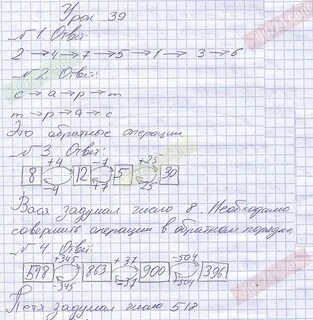 Урок 39
№ 1. Ответ:
2 → 4 → 7 → 5 → 1 → 3 → 6
№ 2. Ответ:
с → а → р → т
т → р → а → с
Это обратные операции
№ 3. Ответ:
+4 -7 +25
8 12 5 30
-4 +7 -25
Вася задумал число 8. Необходимо
совершить операции в обратном порядке.
№ 4. Ответ:
+345 +37 -504
518 863 900 396
-345 -37 +504
Петя задумал число 518